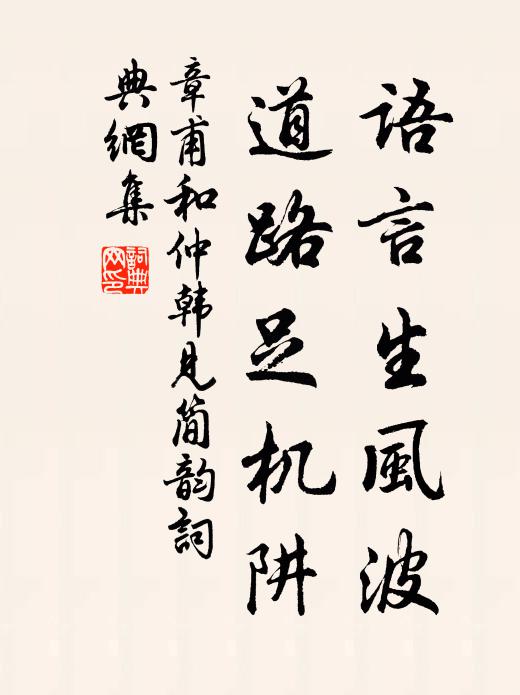 语言生風波
道路足机阱
章甫和仲韩见简韵詞
典網集
詞典
网印